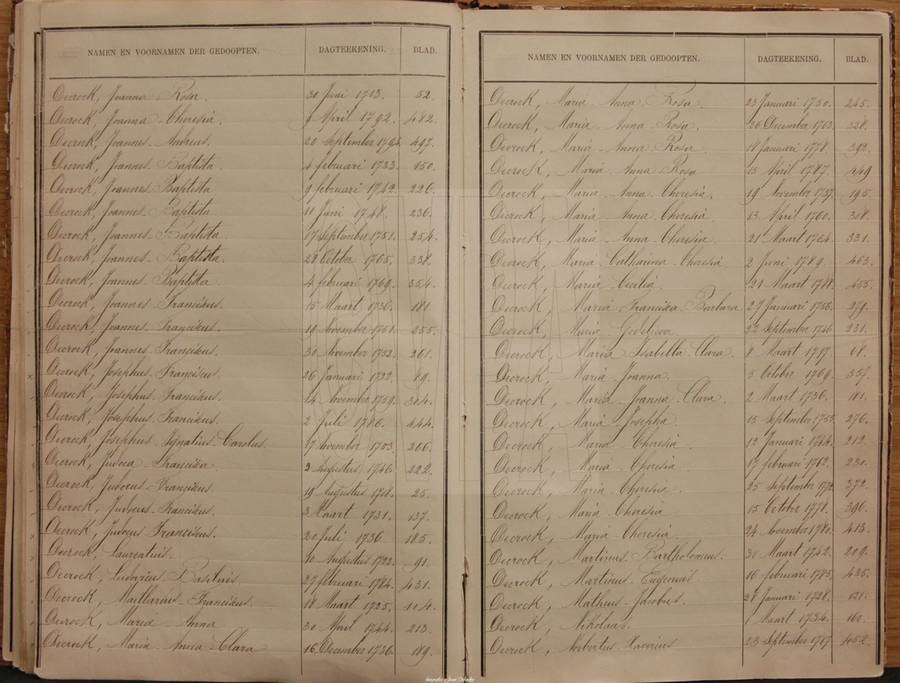 NAMEN EN VOORNAMEN DER GEDOOPTEN. DAGTEEKENING. BLAD.
Decrock, Joanna Rosa. 30 Juni 1713. 52.
Decrock, Joanna Theresia. April 1792. 482.
Decrock, Joannes Andreas. 20 September 1794. 497.
Decrock, Joannes Baptista 4 februari 1733. 150.
Decrock, Joannes Baptista 9 februari 1749. 226.
Decrock, Joannes Baptista 11 Juni 1748. 236.
Decrock, Joannes Baptista 17 September 1751. 254.
Decrock, Joannes Baptista. 28 October 1765. 338.
Decrock, Joannes Baptista 4 februari 1769. 354.
Decrock, Joannes Franciskus. 15 Maart 1736. 181
Decrock, Joannes Franciskus. 19 November 1751. 255.
Decrock, Joannes Franciskus. 30 November 1752. 261.
Decrock, Josephus Franciskus. 26 Januari 1722. 89.
Decrock, Josephus Franciskus. November 1759. 304.
Decrock, Josephus Franciskus. 2 Juli 1786. 444.
Decrock, Josephus Ignatius Carolus. 17 November 1753. 266.
Decrock, Judoca Francisca. 2 Augustus 1746. 222.
Decrock, Judocus Franciskus. 19 Augustus 25.
Decrock, Judocus Franciskus. 3 Maart 1731. 137.
Decrock, Judocus Franciskus. 20 Juli 1736. 185.
Decrock, Laurentius. 10 Augustus 1722. 91.
Decrock, Ludovicus Basilius. 27 februari 1784. 431.
Decrock, Franciskus. 18 Maart 1725. 104.
Decrock, Maria Anna 30 April 1744. 213.
Decrock, Maria Anna Clara 16 December 1736. 189.
NAMEN EN VOORNAMEN DER GEDOOPTEN. DAGTEEKENING. BLAD.
Decrock, Maria Anna Rosa. 23 Januari 1750. 245.
Decrock, Maria Anna Rosa. 26 December 1763. 328.
Decrock, Maria Anna Rosa. 18 Januari 1778. 392.
Decrock, Maria Anna Rosa 15 April 1787. 449
Decrock, Maria Anna Theresia 19 November 1737. 195.
Decrock, Maria Anna Theresia 13 April 1760. 308.
Decrock, Maria Anna Theresia 21 Maart 1764. 331.
Decrock, Maria Catharina Theresia 2 Juni 1789. 463.
Decrock, Maria Cecilia 31 Maart 1788. 455.
Decrock, Maria Francisca Barbara 27 Januari 1755. 279.
Decrock, Maria Godelieva 22 September 1746 231.
Decrock, Maria Isabella Clara. 8 Maart 1717. 68.
Decrock, Maria Joanna. 5 October 1769. 357.
Decrock, Maria Joanna Clara. 2 Maart 1736. 181.
Decrock, Maria Josepha 15 September 1755. 276.
Decrock, Maria Theresia 12 Januari 1744. 212.
Decrock, Maria Theresia 17 februari 230.
Decrock, Maria Theresia 25 September 1772. 372.
Decrock, Maria Theresia 15 October 1771. 390.
Decrock, Maria Theresia. 24 November 1780. 413.
Decrock, Martinus Bartholomeus. 31 Maart 1742. 209.
Decrock, Martinus Eugenius 16 februari 1785. 435.
Decrock, Matheus Jacobus. 28 Januari 1728. 121.
Decrock, Nikolaas. Maart 1734. 160.
Decrock, Norbertus Xaverius 23 September 1787. 452.